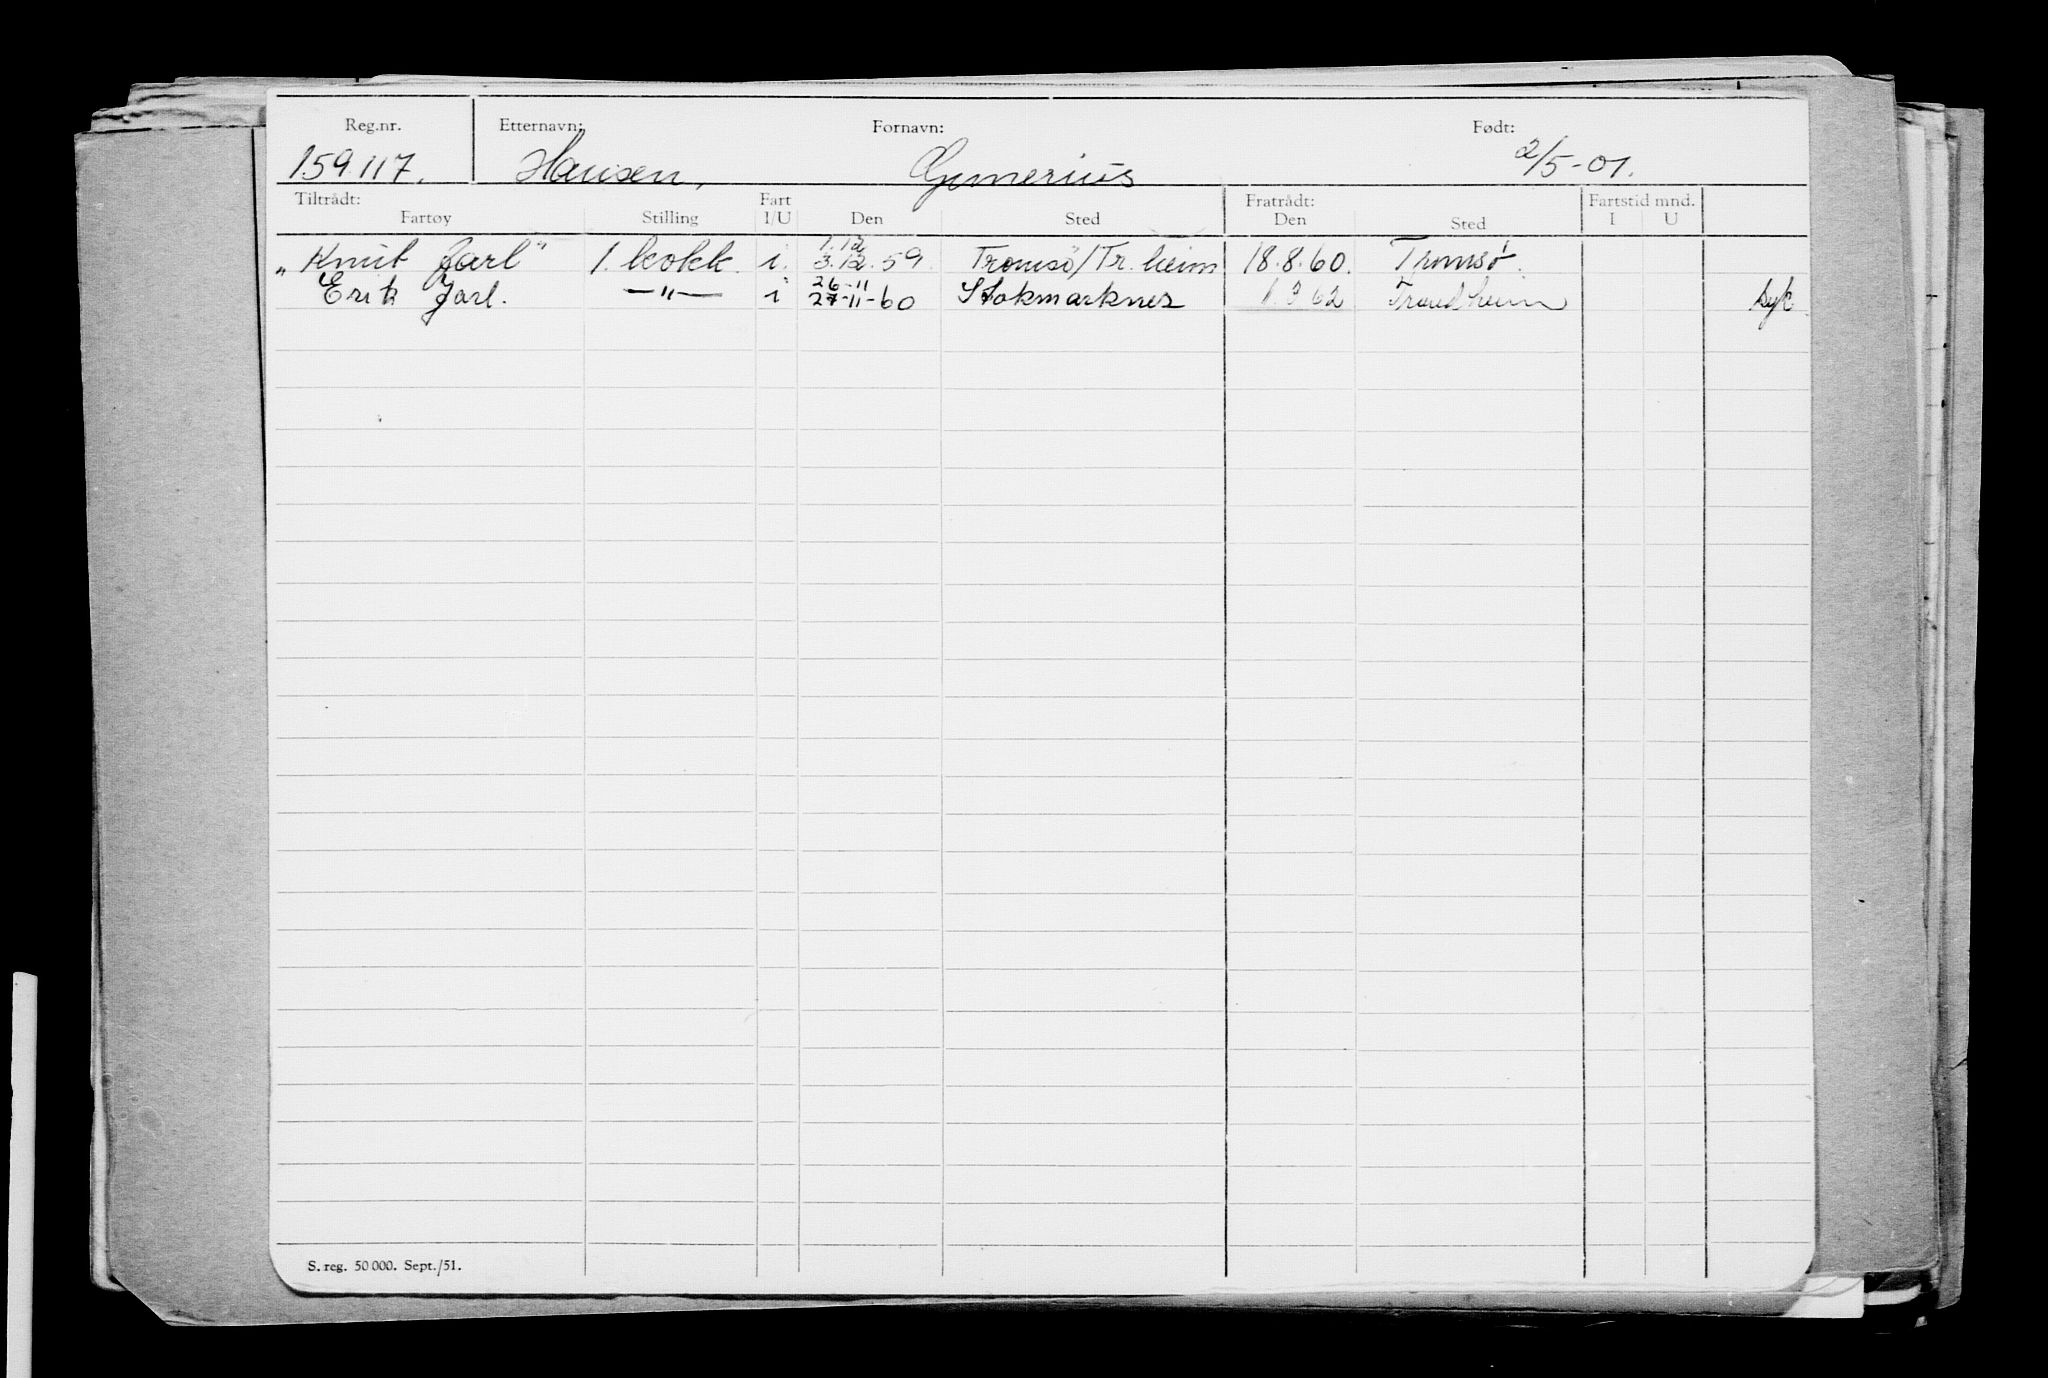 Reg.nr. Etternavn: Fornavn: Født:
159.117. Hansen, Gunerius 2/5-01.
Tiltrådt: Fart Fratrådt: Fartstid mnd.
Fartøy Stilling I/U Den Sted Den Sted I U
1.12
"Knut Jarl" 1. kokk. i. 3.12.59. Tromsö/Tr.heim 18.8.60. Tromsø.
26-11
Erik Jarl. —"— i 27-11-60 Stokmarknes 1.3 62 Trondheim syk.
S. reg. 50 000. Sept./51.